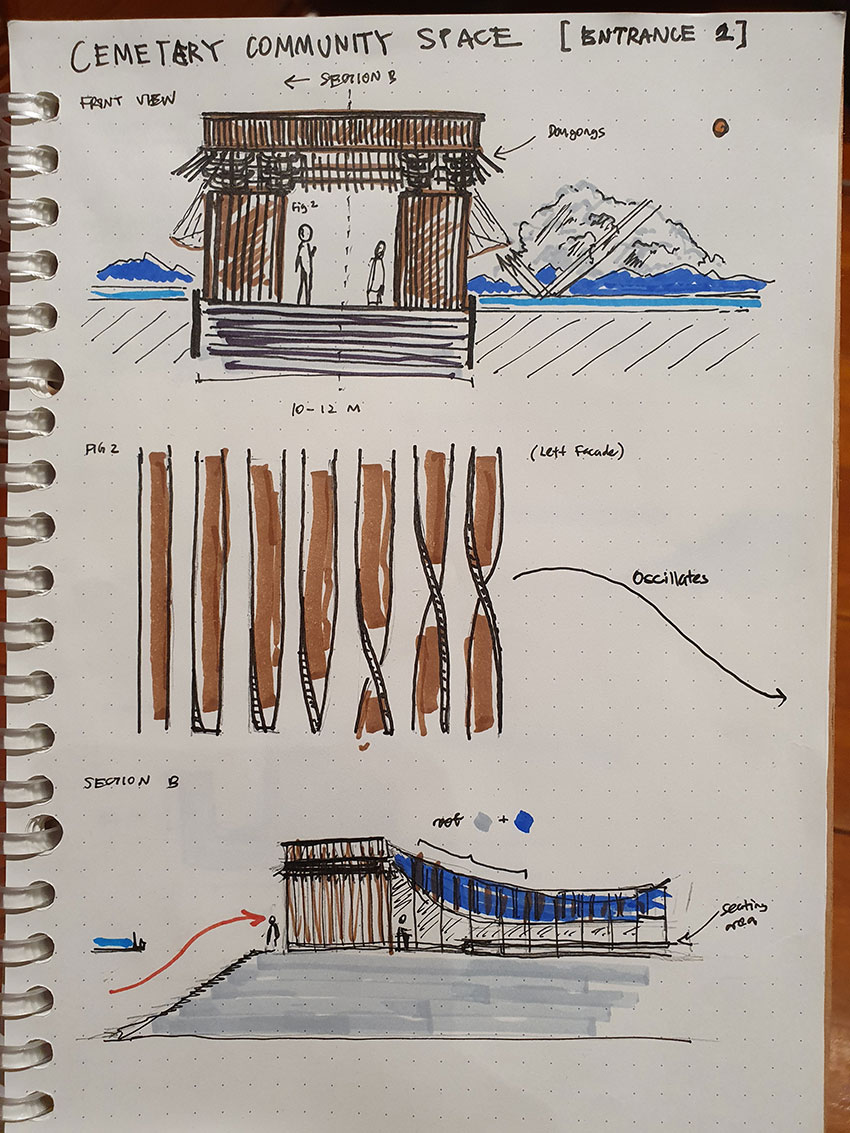 CEMETARY COMMUNITY SPACE [ENTRANCE 1]
← SECTION B
FRONT VIEW
Dougongs
Fig. 2
10-12 M
FIG 2
(Left Facade)
Oscillates
SECTION B
roof +
seating
area